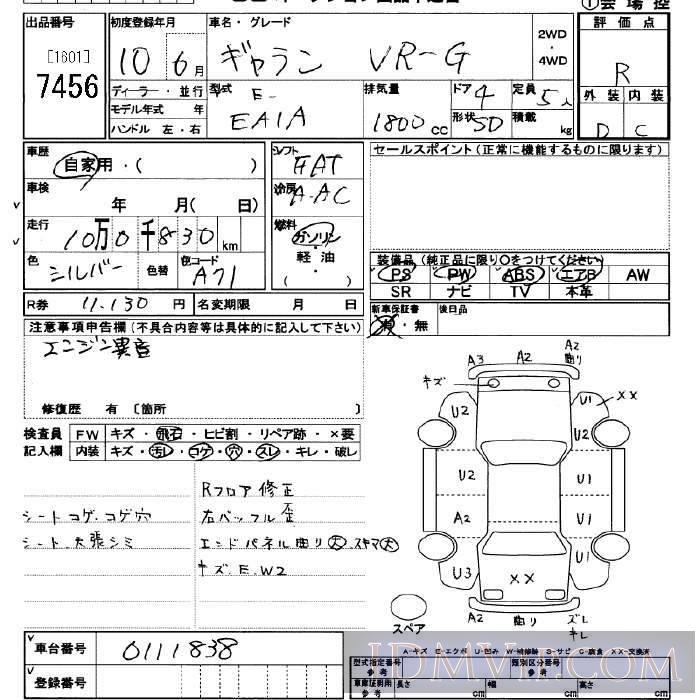 出品番号
[1601]
7456
初度登録年月
10年6月
ディーラー・並行
モデル年式 年
ハンドル 左・右
車名・グレード
ギャラン VR-G
2WD
4WD
型式 E-
EA1A
排気量
1800cc
ドア 4
形状 SD
定員 5人
積載 kg
評価点
R
外装 内装
D C
車歴
自家用・( )
車検 年 月( 日)
走行
10万0千830km
色 シルバー
色替
色コード A71
シフト
FAT
冷房
A.AC
燃料
ガソリン
軽油
( ・ )
セールスポイント(正常に機能するものに限ります)
装備品(純正品に限り○をつけてください)
PS PW ABS エアB AW
SR ナビ TV 本革
新車保証書
有・無
後日品
R券 11,130円
名変期限 月 日
注意事項申告欄(不具合内容等は具体的に記入して下さい)
エンジン異音
修復歴 有 〔箇所 〕
検査員
記入欄
FW キズ・飛石・ヒビ割・リペア跡・×要
内装 キズ・汚レ・コゲ・穴・スレ・キレ・破レ
シートコゲ.コゲ穴
シート.天張シミ
Rフロア修正
右バッフル歪
エンドパネル曲り大.スキマ大
キズ.E.W2
A3 A2 A2 曲り
キズ
U2 U1 XX
U2
U2 U1
A2 U1
U3 XX U1
A2 曲り ズレ
キレ
スペア
A-キズ E-エクボ U-凹み W-補修跡 S-サビ C-腐食 XX-交換済
車台番号
0111838
登録番号
型式指定番号
参考
類別区分番号
参考
車庫証明用
参考
長さ cm
幅 cm
高さ cm
JDMVIP.COM